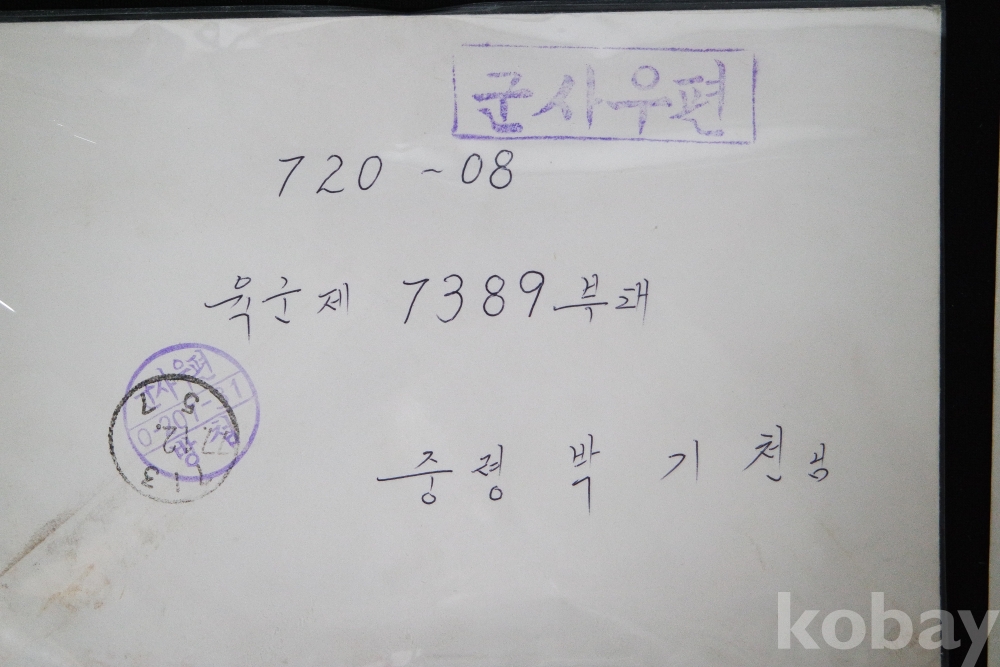 군사우편
720 ~08
육군제 7389부대
중령 박 기 천 님
kobay